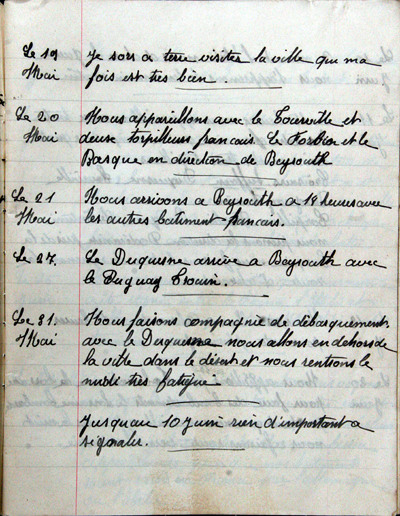 Le 19 Je sors a terre visiter la ville qui ma
Mai fois est tres bien.
Le 20 Nous appareillons avec le Tourville et
Mai deux torpilleurs francais le Forbin et le
Basque en direction de Beyrouth
Le 21 Nous arrivons a Beyrouth a 18 heures avec
Mai les autres batiment francais.
Le 27. Le Duquesne arrive a Beyrouth avec
le Duguay Trouin.
Le 31. Nous faisons compagnie de débarquement
Mai avec le Duquesne nous allons en dehors de
la ville dans le désert et nous rentrons le
très fatigué
Jusquau 10 Juin rien d'important a
signaler.